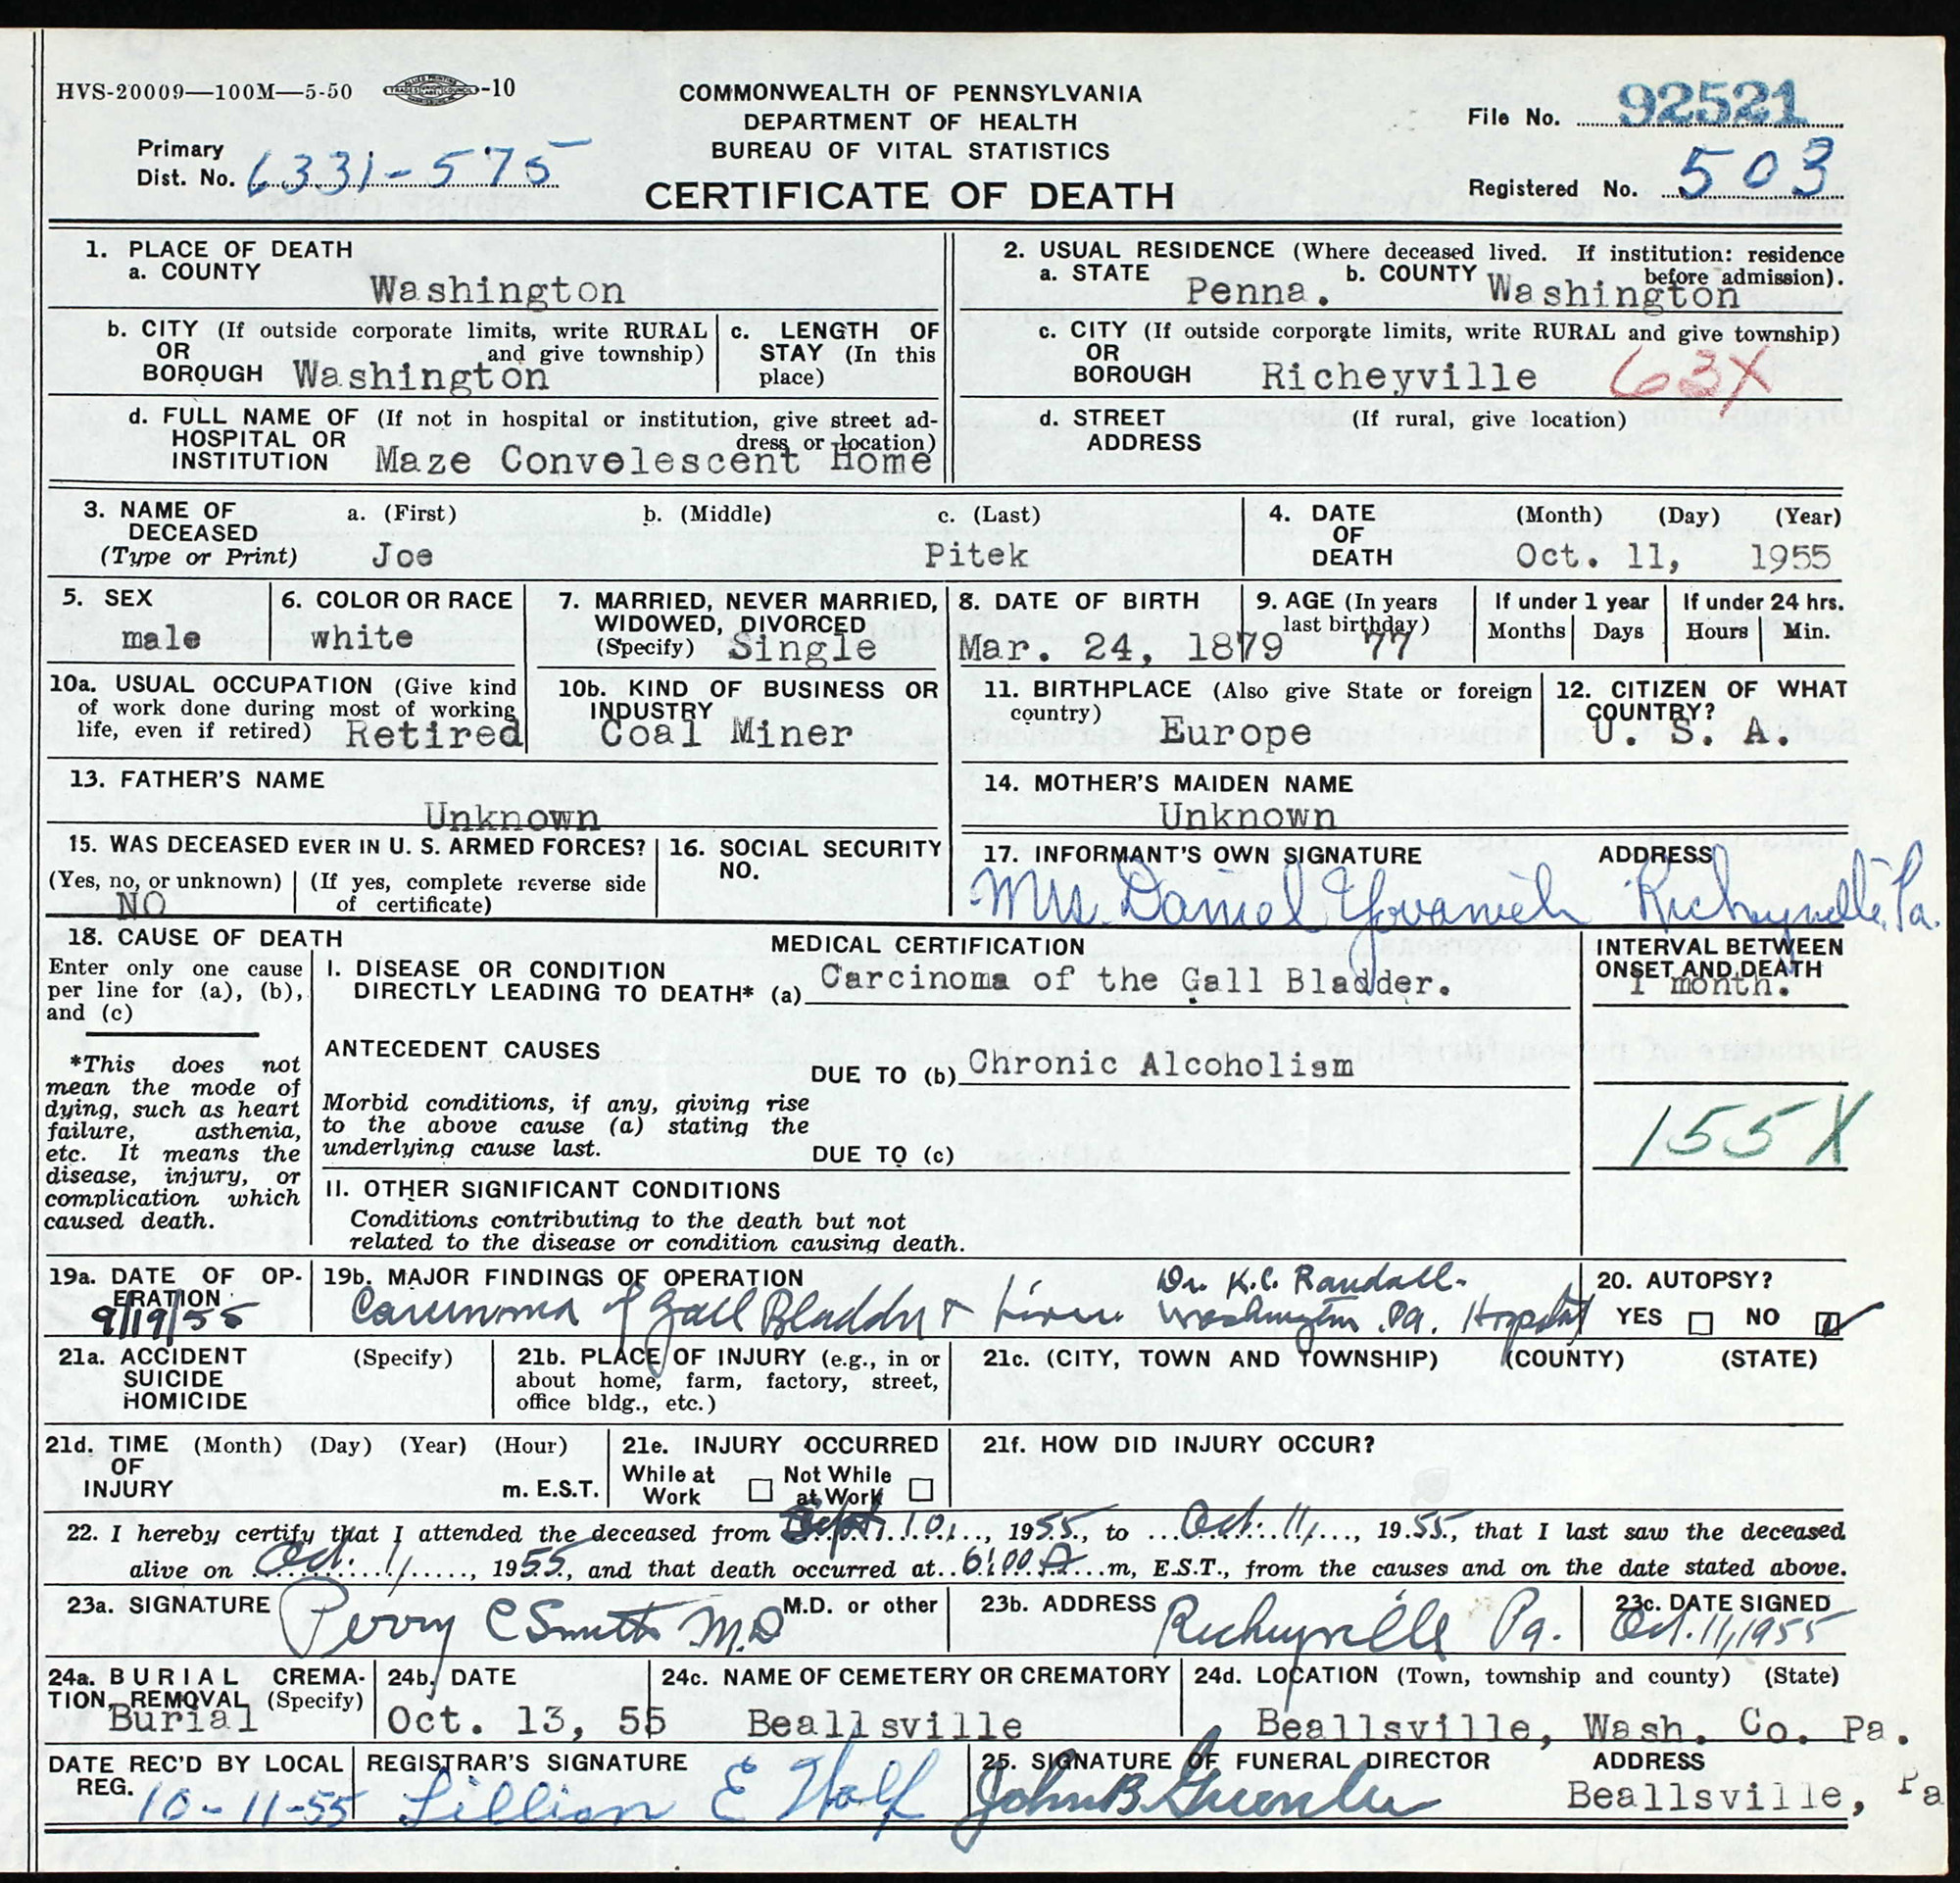 HVS-20009—100M—5-50 -10
COMMONWEALTH OF PENNSYLVANIA
DEPARTMENT OF HEALTH
BUREAU OF VITAL STATISTICS
CERTIFICATE OF DEATH
File No. 92521
Primary
Dist. No. 6331-575
Registered No. 503
1. PLACE OF DEATH
a. COUNTY
Washington
2. USUAL RESIDENCE (Where deceased lived. If institution: residence
before admission).
a. STATE Penna. b. COUNTY Washington
b. CITY (If outside corporate limits, write RURAL
OR and give township)
BOROUGH Washington
c. LENGTH OF
STAY (In this
place)
c. CITY (If outside corporate limits, write RURAL and give township)
OR
BOROUGH Richeyville 63X
d. FULL NAME OF (If not in hospital or institution, give street ad-
HOSPITAL OR dress or location)
INSTITUTION Maze Convelescent Home
d. STREET (If rural, give location)
ADDRESS
3. NAME OF a. (First) b. (Middle) c. (Last)
DECEASED
(Type or Print) Joe Pitek
4. DATE (Month) (Day) (Year)
OF
DEATH Oct. 11, 1955
5. SEX
male
6. COLOR OR RACE
white
7. MARRIED, NEVER MARRIED,
WIDOWED, DIVORCED
(Specify) Single
8. DATE OF BIRTH
Mar. 24, 1879
9. AGE (In years
last birthday)
77
If under 1 year
Months Days
If under 24 hrs.
Hours Min.
10a. USUAL OCCUPATION (Give kind
of work done during most of working
life, even if retired) Retired
10b. KIND OF BUSINESS OR
INDUSTRY
Coal Miner
11. BIRTHPLACE (Also give State or foreign
country)
Europe
12. CITIZEN OF WHAT
COUNTRY?
U. S. A.
13. FATHER'S NAME
Unknown
14. MOTHER'S MAIDEN NAME
Unknown
15. WAS DECEASED EVER IN U. S. ARMED FORCES?
(Yes, no, or unknown) (If yes, complete reverse side
of certificate)
NO
16. SOCIAL SECURITY
NO.
17. INFORMANT'S OWN SIGNATURE ADDRESS
Mrs. Daniel Yovanich Richeyville, Pa.
18. CAUSE OF DEATH
Enter only one cause
per line for (a), (b),
and (c)
*This does not
mean the mode of
dying, such as heart
failure, asthenia,
etc. It means the
disease, injury, or
complication which
caused death.
MEDICAL CERTIFICATION
I. DISEASE OR CONDITION
DIRECTLY LEADING TO DEATH* (a) Carcinoma of the Gall Bladder.
INTERVAL BETWEEN
ONSET AND DEATH
1 month.
ANTECEDENT CAUSES
DUE TO (b) Chronic Alcoholism
Morbid conditions, if any, giving rise
to the above cause (a) stating the
underlying cause last.
DUE TO (c)
155X
II. OTHER SIGNIFICANT CONDITIONS
Conditions contributing to the death but not
related to the disease or condition causing death.
19a. DATE OF OP-
ERATION
9/19/55
19b. MAJOR FINDINGS OF OPERATION Dr. K.C. Randall-
Carcinoma of Gall Bladder + Liver. Washington Pa. Hospital
20. AUTOPSY?
YES NO
21a. ACCIDENT (Specify)
SUICIDE
HOMICIDE
21b. PLACE OF INJURY (e.g., in or
about home, farm, factory, street,
office bldg., etc.)
21c. (CITY, TOWN AND TOWNSHIP) (COUNTY) (STATE)
21d. TIME (Month) (Day) (Year) (Hour)
OF
INJURY m. E.S.T.
21e. INJURY OCCURRED
While at Not While
Work at Work
21f. HOW DID INJURY OCCUR?
22. I hereby certify that I attended the deceased from Sept. 10, 1955, to Oct. 11, 1955, that I last saw the deceased
alive on Oct. 11, 1955, and that death occurred at 6:00 A m, E.S.T., from the causes and on the date stated above.
23a. SIGNATURE Perry C Smith M.D M.D. or other
23b. ADDRESS Richeyville Pa.
23c. DATE SIGNED
Oct. 11, 1955
24a. BURIAL CREMA-
TION, REMOVAL (Specify)
Burial
24b. DATE
Oct. 13, 55
24c. NAME OF CEMETERY OR CREMATORY
Beallsville
24d. LOCATION (Town, township and county) (State)
Beallsville, Wash. Co. Pa.
DATE REC'D BY LOCAL
REG. 10-11-55
REGISTRAR'S SIGNATURE
Lillian E Wolf
25. SIGNATURE OF FUNERAL DIRECTOR ADDRESS
John B. Greenlee Beallsville, Pa